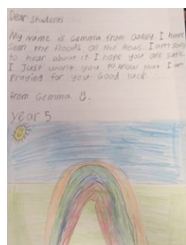 Dear Students
My name is Gemma from Oakey. I have
seen the floods on the News. I am sorry
to hear about it I hope you are safe.
I Just want you to know that I am
praying for you. Good luck.
from Gemma
year 5